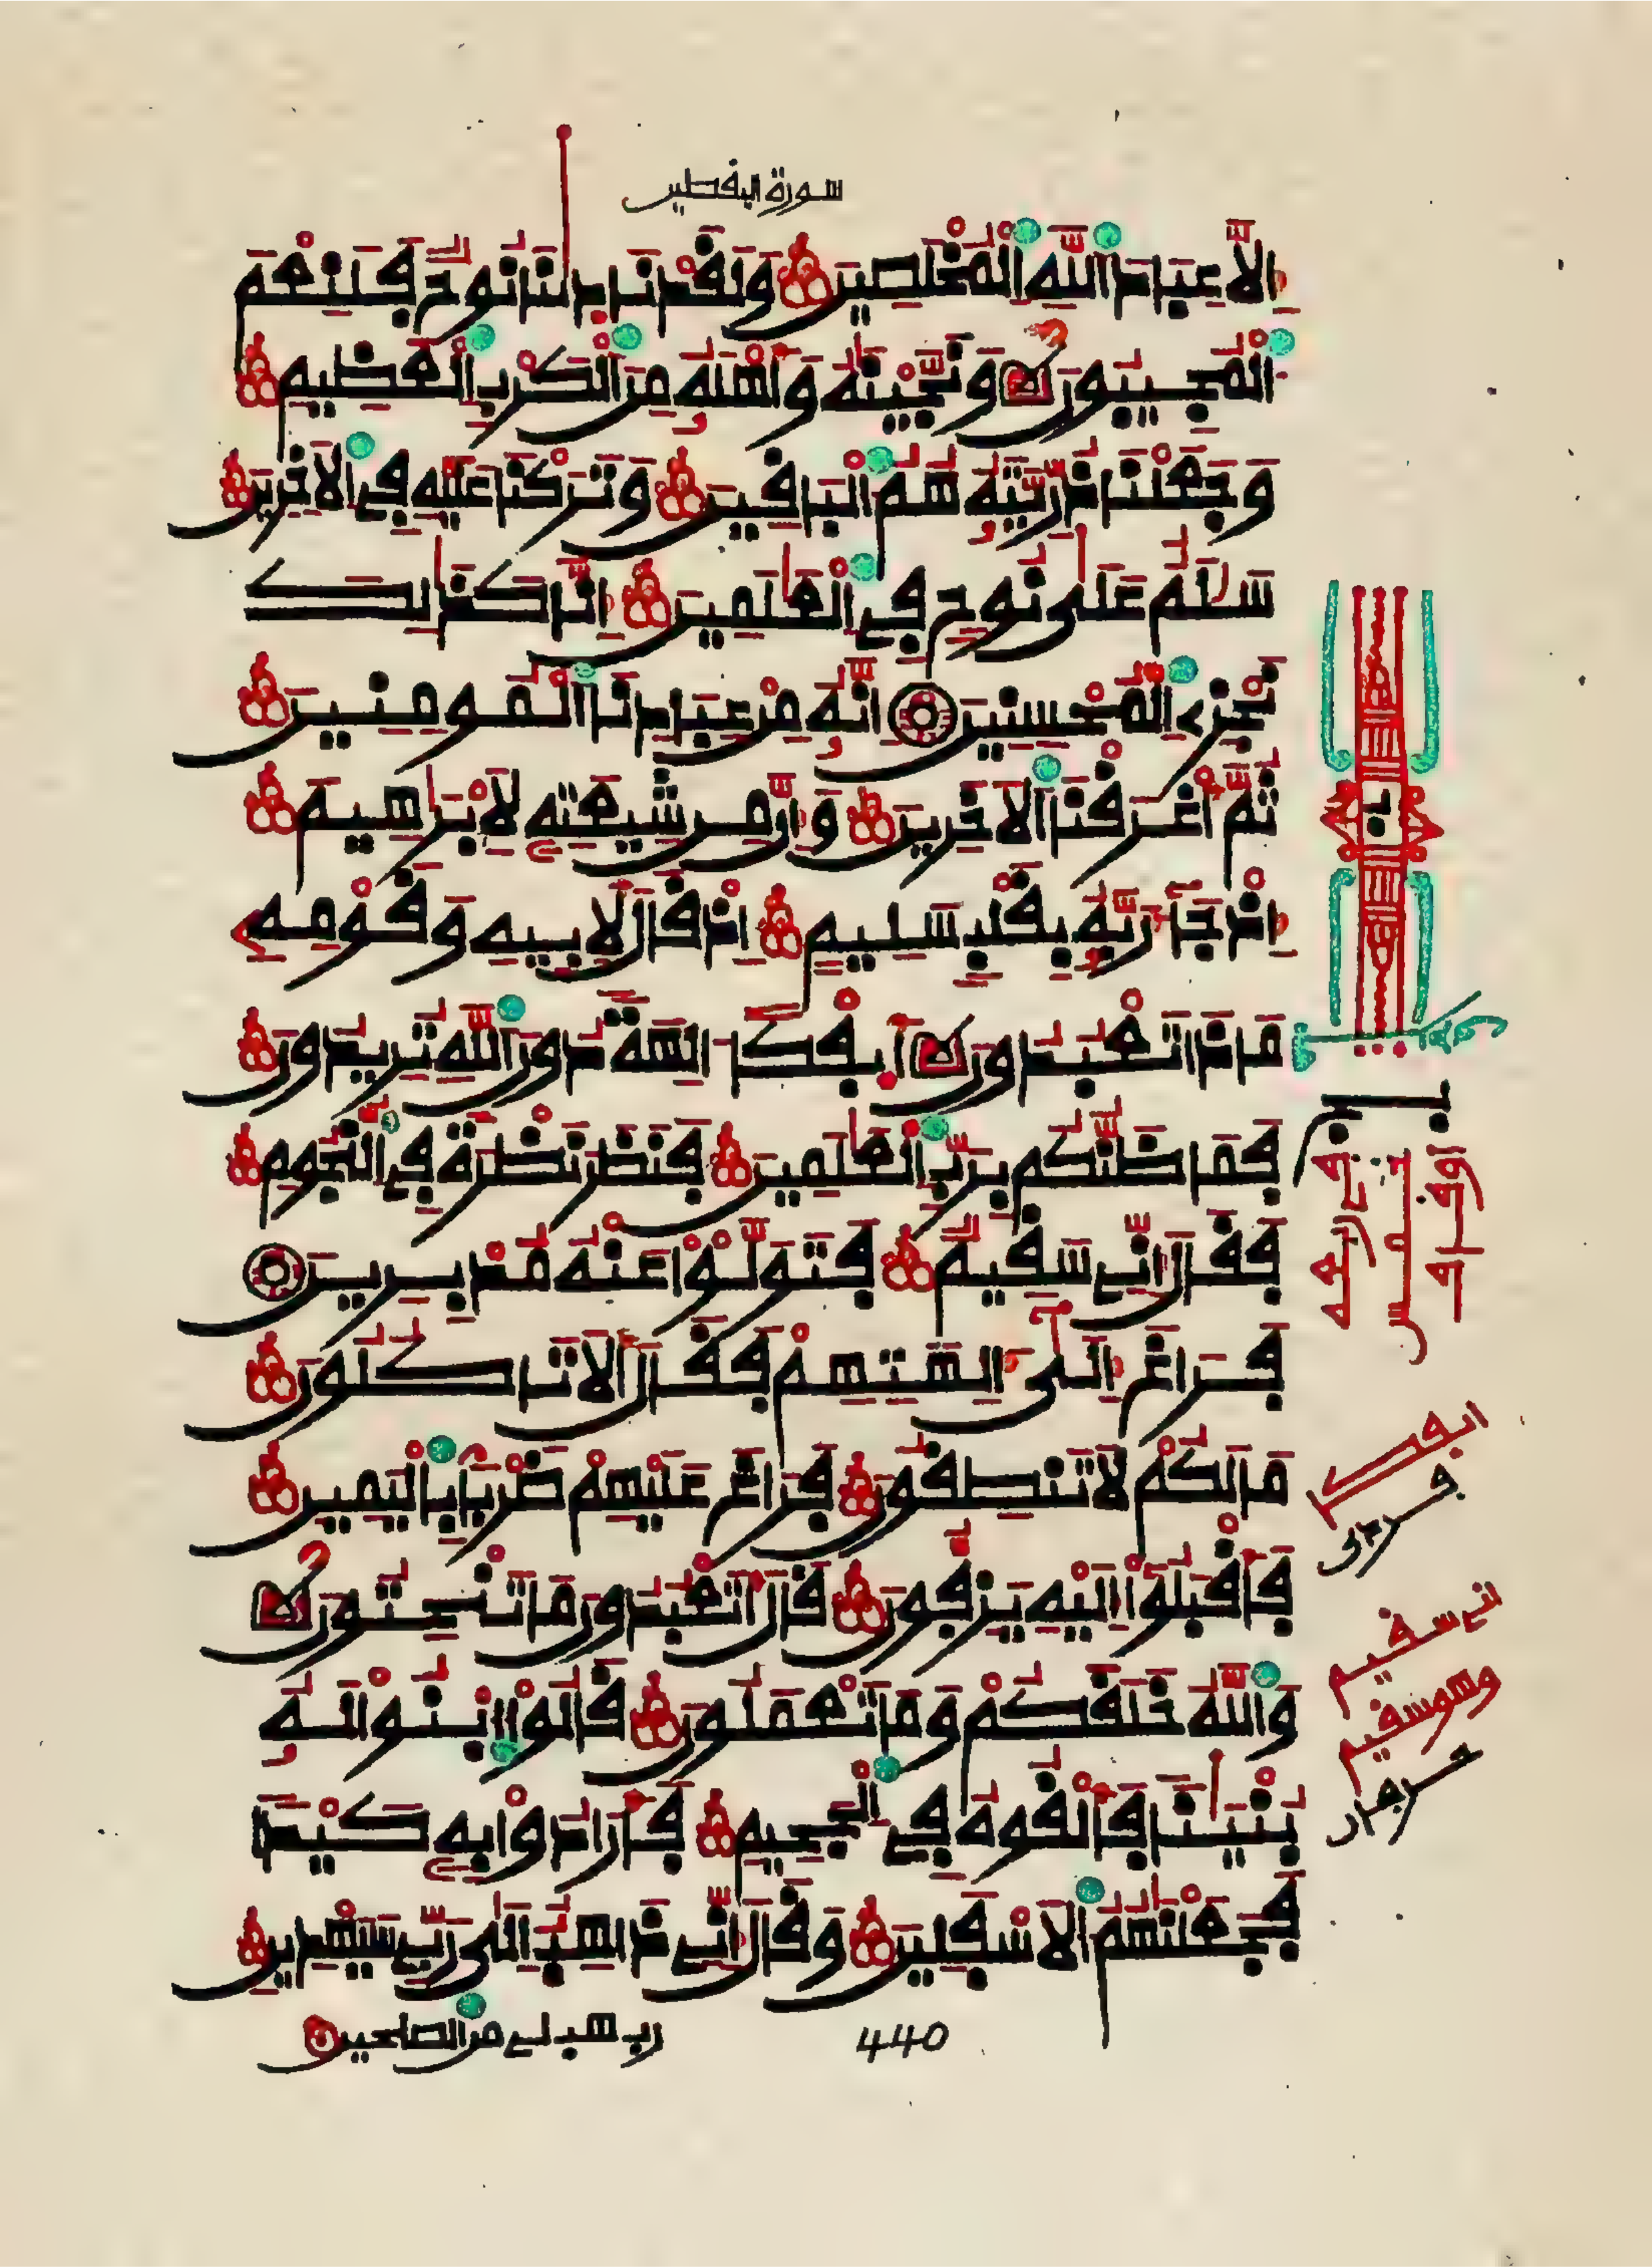 سورة اليقطين
إلا عباد الله المخلصين ولقد نادلنا نوح فلنعم
المجيبون ونجينه وأهله من الكرب العظيم
وجعلنا ذريته هم الباقين وتركنا عليه في الآخرين
سلم على نوح في العلمين إنا كذلك
نجزي المحسنين إنه من عبادنا المومنين
ثم أغرقنا الآخرين وإن من شيعته لإبرهيم
إذ جا ربه بقلب سليم إذ قال لأبيه وقومه
ماذا تعبدون أيفكا الهة دون الله تريدون
فما ظنكم برب العلمين فنظر نظرة في النجوم
فقال إني سقيم فتولوا عنه مدبرين
فراغ إلى الهتهم فقال ألا تاكلون
ما لكم لا تنطقون فراغ عليهم ضربا باليمين
فأقبلوا إليه يزفون قال أتعبدون ما تنحتون
والله خلقكم وما تعملون قالوا ابنوا له
بنينا فألقوه في الجحيم فأرادوا به كيدا
فجعلنهم الأسفلين وقال إني ذاهب إلى ربي سيهدين
رب هب لي من الصلحين
440
إني سقيم
وهو سقيم